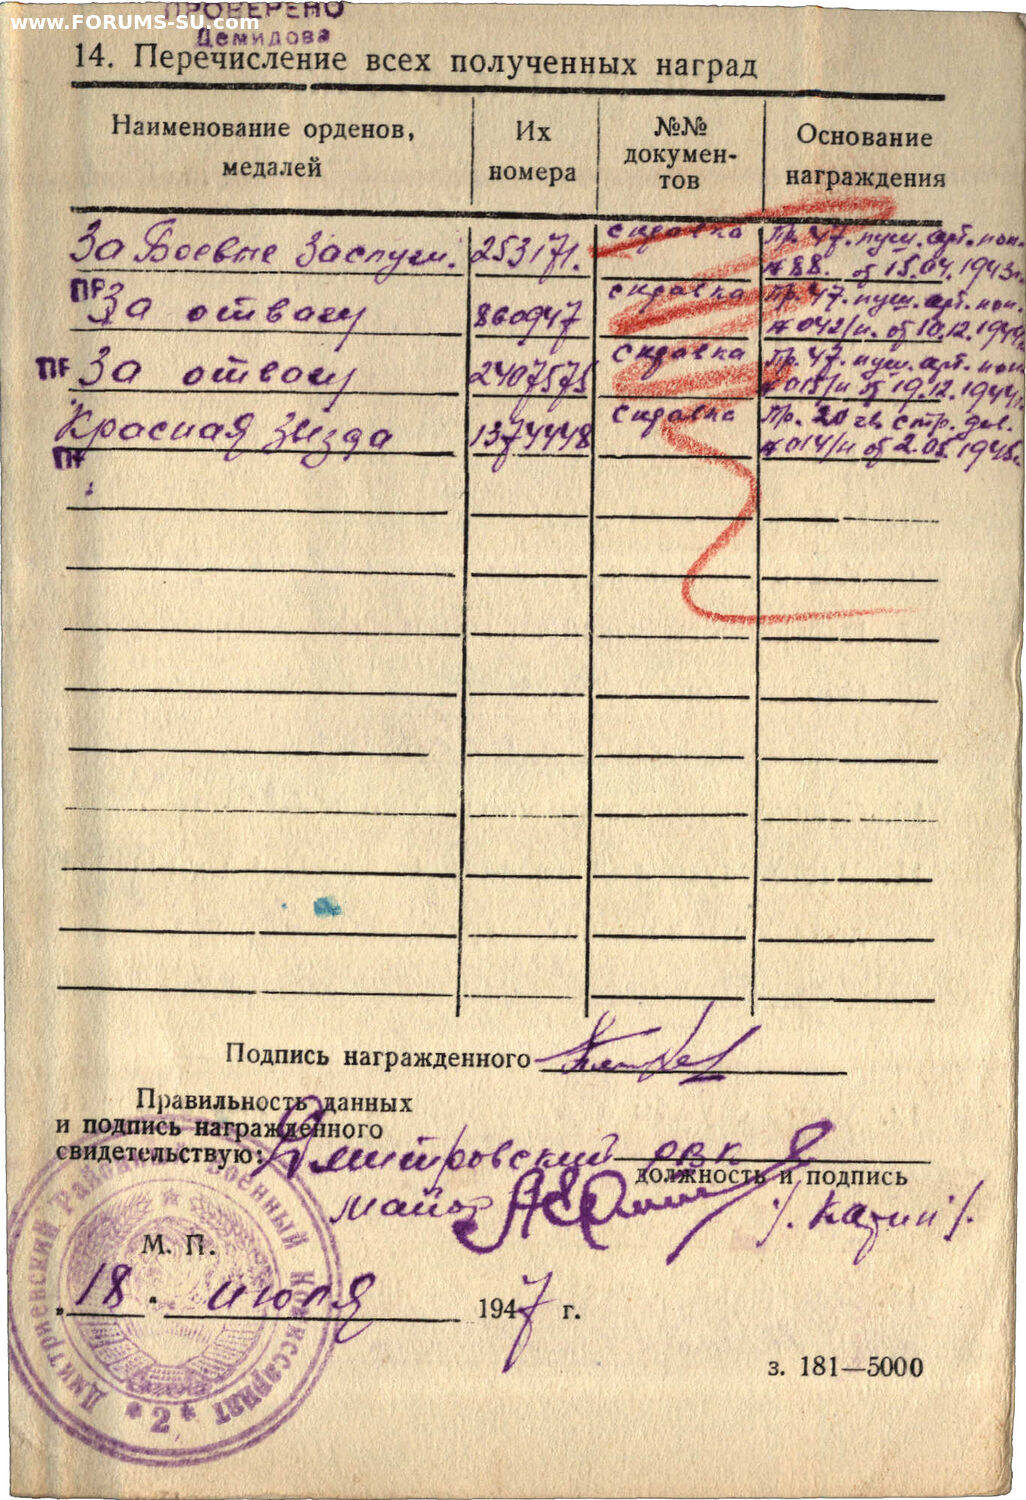 ПРОВЕРЕНО
www.FORUMS-SU.com
Демидова
14. Перечисление всех полученных наград
Наименование орденов, медалей
Их номера
№№ докумен-
тов
Основание награждения
За Боевые Заслуги. 253171. справка Пр. 47. пуш. арт. пол.
№ 88. от 15.04.1943г.
ПГ
За отвагу 860947 справка Пр. 47. пуш. арт. пол.
№ 042/н. от 10.12.1944г.
ПГ За отвагу 2407575 справка Пр. 47. пуш. арт. пол.
№ 015/н от 19.12.1944г.
Красная Звезда 1374448 справка Пр. 20 гв. стр. див.
№ 014/н от 2.05.1945г.
ПГ
Подпись награжденного
Правильность данных
и подпись награжденного
свидетельствую: Дмитровский РВК
должность и подпись
майор /. Карпин /.
М. П.
„18 " июля 1947 г.
з. 181—5000
Районный Военный Комиссариат
* 2 *